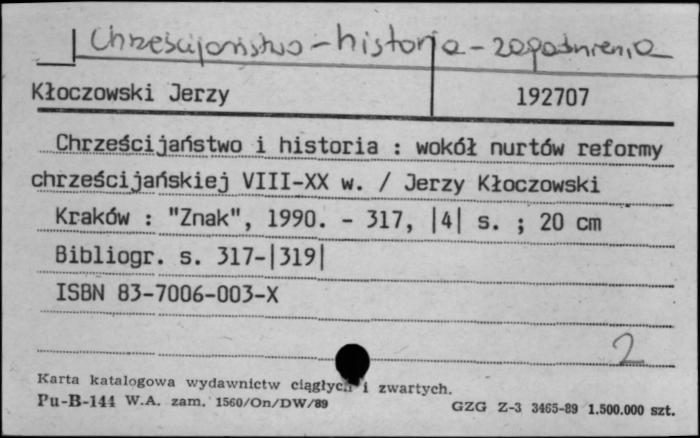 Chrześcijaństwo - historia - zagadnienia
Kłoczowski Jerzy 192707
Chrześcijaństwo i historia : wokół nurtów reformy
chrześcijańskiej VIII-XX w. / Jerzy Kłoczowski
Kraków : "Znak", 1990. - 317, |4| s. ; 20 cm
Bibliogr. s. 317-|319|
ISBN 83-7006-003-X
2
Karta katalogowa wydawnictw ciągłych i zwartych.
Pu-B-144 W.A. zam. 1560/On/DW/89 GZG Z-3 3465-89 1.500.000 szt.